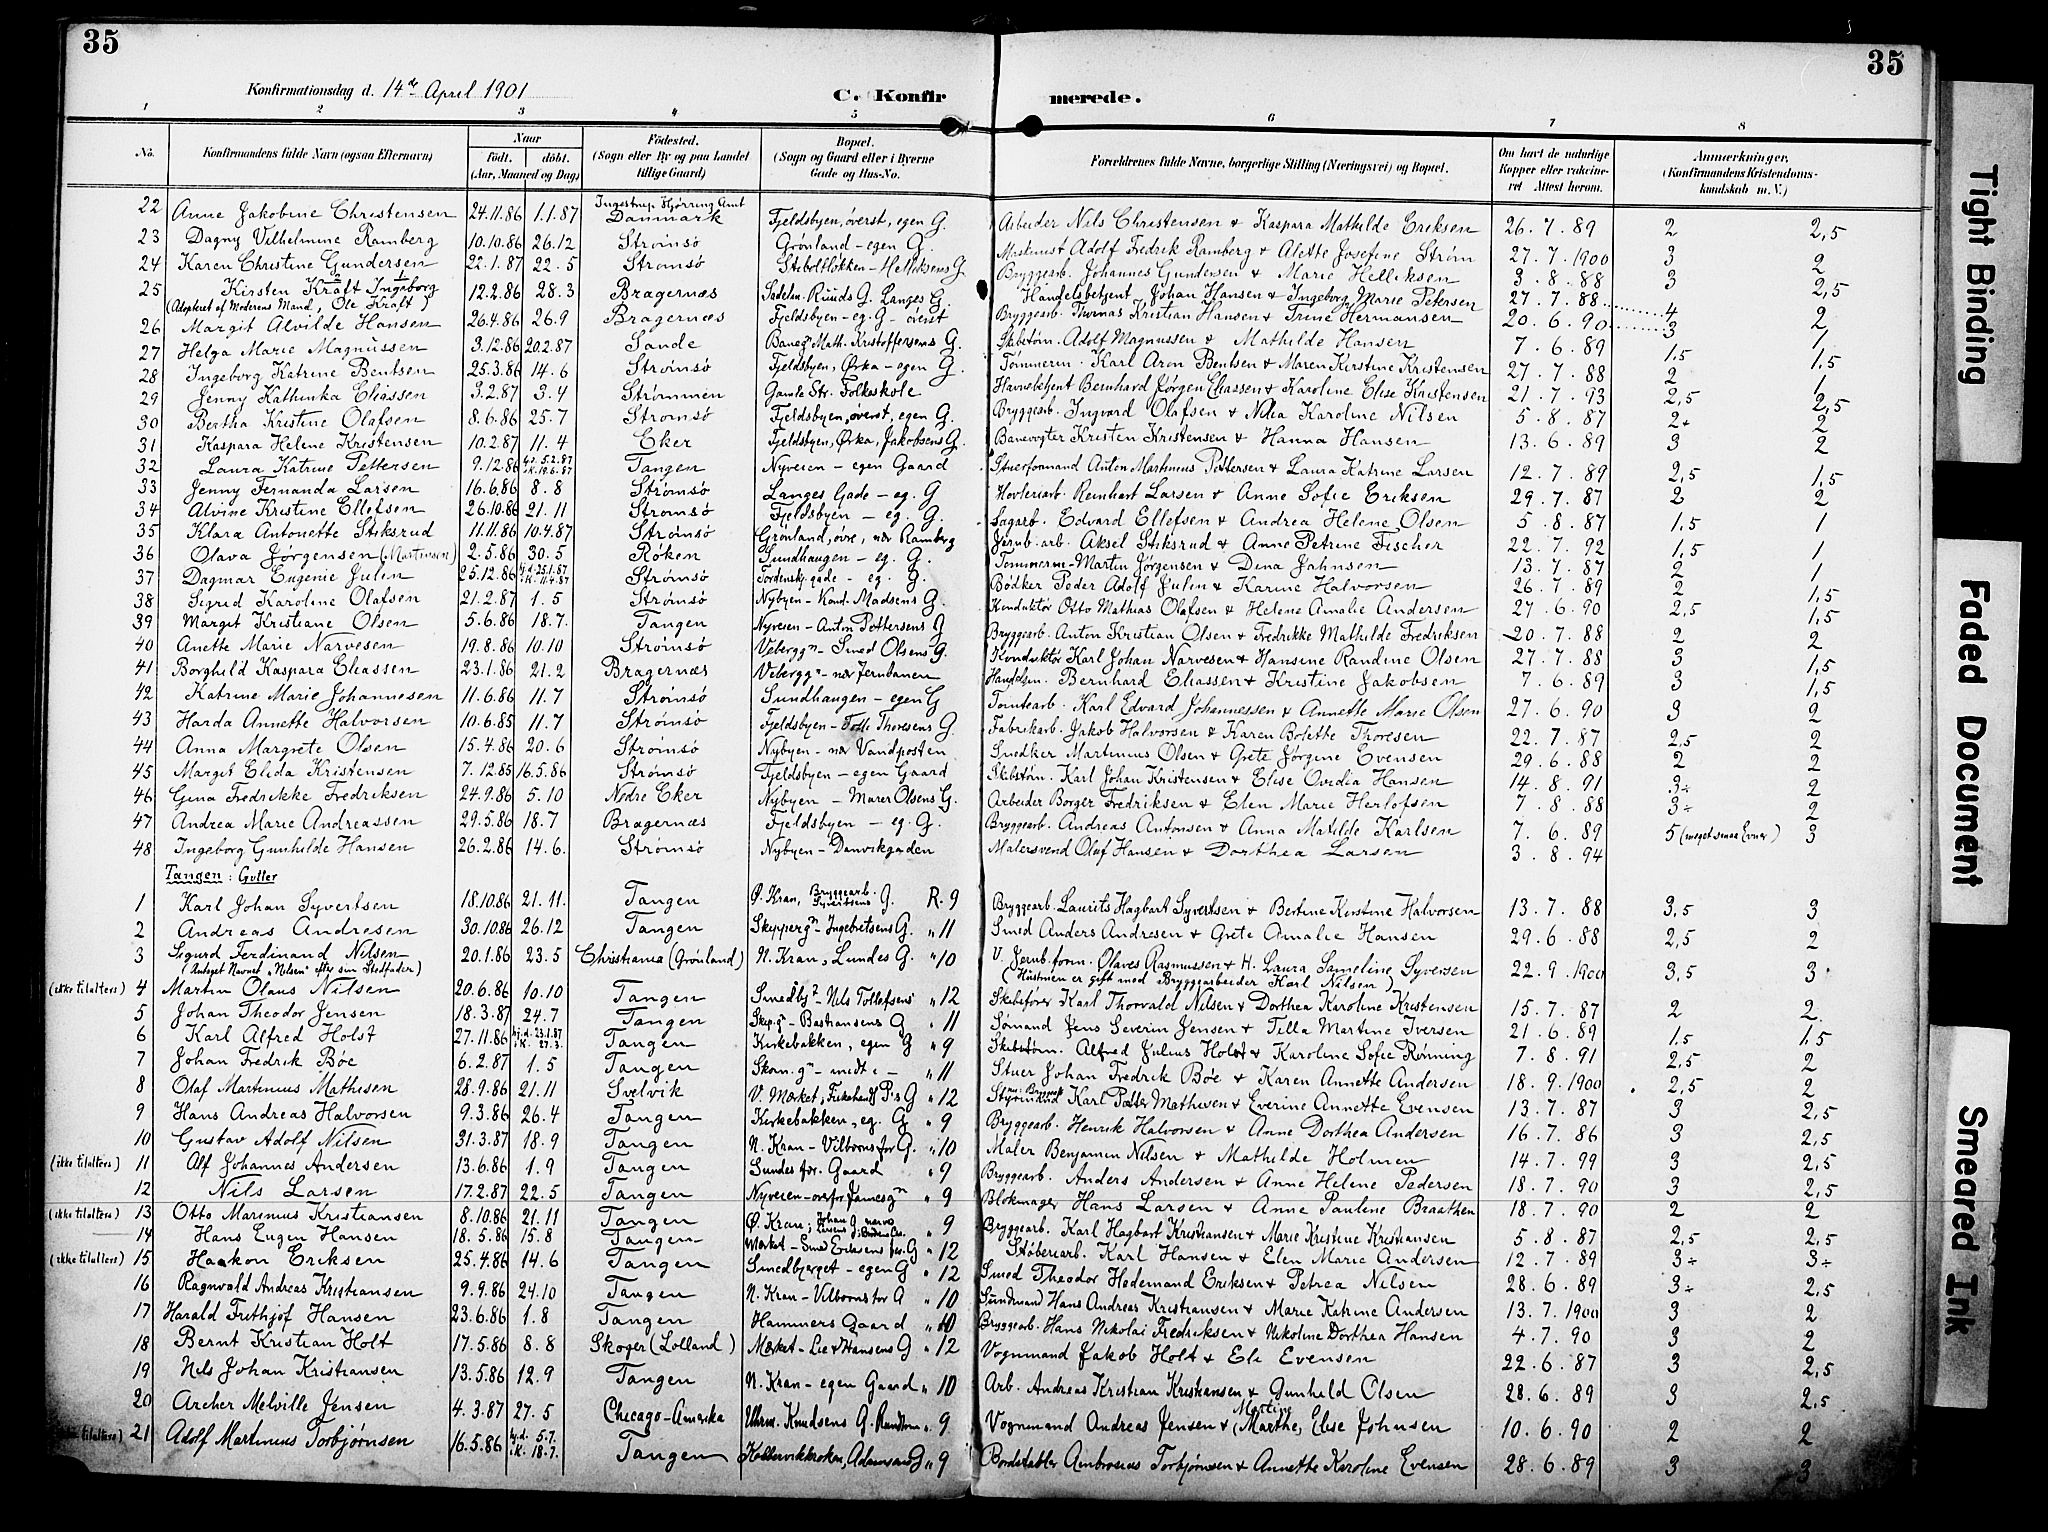 35
35
Konfirmationsdag d. 14de April 1901
C. Konfirmerede.
1 2 3 4 5 6 7 8
No. Konfirmandens fulde Navn (ogsaa Efternavn) Naar födt. döbt. (Aar, Maaned og Dag) Födested. (Sogn eller By og paa Landet tillige Gaard) Bopæl. (Sogn og Gaard eller i Byerne Gade og Hus-No. Forældrenes fulde Navne, borgerlige Stilling (Næringsvei) og Bopæl. Om havt de naturlige Kopper eller vaccineret. Attest herom. Anmærkninger, (Konfirmandens Kristendomskundskab m. V.)
22 Anne Jakobine Christensen 24.11.86 1.1.87 Ingestrup Hjørring Amt Danmark Fjeldsbyen, överst, egen G. Arbeider Nils Christensen & Kaspara Mathilde Eriksen 26.7.89 2 2,5
23 Dagny Vilhelmine Ramberg 10.10.86 26.12 Strømsö Grönland - egen G. Maskinist Adolf Fredrik Ramberg & Alette Josefine Strøm 27.7.1900 3 2
24 Karen Christine Gundersen 22.1.87 22.5 Strømsö Stiboltløkken - Helliksens G Bryggearb. Johannes Gundersen & Marie Helliksen 3.8.88 3 2,5
25 Kirsten Kraft Ingeborg 12.2.86 28.3 Bragernæs Sadelm. Ruuds G. Langes G. Handelsbetjent Johan Hansen & Ingeborg Marie Petersen 27.7.88 4 2
(Adopteret af Moderens Mand, Ole Kraft)
26 Margit Alvilde Hansen 26.4.86 26.9 Bragernæs Fjeldsbyen - eg. G - överst Bryggearb. Thomas Kristian Hansen & Trine Hermansen 20.6.90 3 1
27 Helga Marie Magnussen 3.12.86 20.2.87 Sande Baneg. Math. Kristoffersens G. Skibstøm. Adolf Magnussen & Mathilde Hansen 7.6.89 1,5 1,5
28 Ingeborg Katrine Bentsen 25.3.86 14.6 Strømsö Fjeldsbyen, Ørka - egen G. Tömmerm. Karl Aron Bentsen & Maren Kirstine Kristensen 27.7.88 2 1
29 Jenny Kathinka Eliassen 3.2.87 3.4 Strömmen Gamle Str. Folkeskole Havnebetjent Bernhard Jørgen Eliassen & Karoline Elise Kristensen 21.7.93 2,5 2,5
30 Bertha Kristine Olafsen 8.6.86 25.7 Strømsö Fjeldsbyen, överst, egen G. Bryggearb. Ingvard Olafsen & Nilia Karoline Nilsen 5.8.87 2+ 2
31 Kaspara Helene Kristensen 10.2.87 11.4 Eker Fjeldsbyen, Ørka, Jakobsens G. Banevogter Kristen Kristensen & Hanna Hansen 13.6.89 3 2
32 Laura Katrine Pettersen 9.12.86 hj.d. 5.2.87 i K. 19.6.87 Tangen Nyveien - egen Gaard Stuerformand Anton Martinius Pettersen & Laura Katrine Larsen 12.7.89 2,5 1,5
33 Jenny Fernanda Larsen 16.6.86 8.8 Strømsö Langes Gade - eg. G Hovleriarb. Reinhart Larsen & Anne Sofie Eriksen 29.7.87 2 2
34 Alvine Kristine Ellefsen 26.10.86 21.11 Strømsö Fjeldsbyen - eg. G. Sagarb. Edvard Ellefsen & Andrea Helene Olsen 5.8.87 1,5 1
35 Klara Antonette Stiksrud 11.11.86 10.4.87 Strømsö Grönland, övre, nær Ramberg Jernb.arb. Aksel Stiksrud & Anne Petrine Fischer 22.7.92 1,5 1
36 Olava Jörgensen (Martinsen) 2.5.86 30.5 Röken Sundhaugen - eg. G. Tømmerm. Martin Jörgensen & Dina Jahnsen 13.7.87 2 1
37 Dagmar Eugenie Julin 25.12.86 hj.d. 25.1.87 i K. 11.4.87 Strømsö Tordenskj.gade - eg. G. Bödker Peder Adolf Julin & Karine Halvorsen 26.7.89 2 1,5
38 Sigrid Karoline Olafsen 21.2.87 1.5 Strømsö Nybyen - Kond. Madsens G. Konduktör Otto Mathias Olafsen & Helene Amalie Andersen 27.6.90 2,5 1,5
39 Margit Kristiane Olsen 5.6.86 18.7. Tangen Nyveien - Anton Pettersens G Bryggearb. Anton Kristian Olsen & Fredrikke Mathilde Fredriksen 20.7.88 2 2
40 Anette Marie Narvesen 19.8.86 10.10 Strømsö Vebergg. - Smed Olsens G. Konduktör Karl Johan Narvesen & Hansine Randine Olsen 27.7.88 3 1,5
41 Borghild Kaspara Eliassen 23.1.86 21.2 Bragernæs Vebergg. - nær Jernbanen Handelsm. Bernhard Eliassen & Kristine Jakobsen 7.6.89 3 1,5
42 Katrine Marie Johannesen 11.6.86 11.7 Strømsö Sundhaugen - egen G Tomtearb. Karl Edvard Johannessen & Annette Marie Olsen 27.6.90 3 2
43 Harda Annette Halvorsen 10.6.85 11.7 Strømsö Fjeldsbyen - Tolle Thoresens G. Fabrikarb. Jakob Halvorsen & Karen Bolette Thoresen 22.7.87 2,5 2
44 Anna Margrete Olsen 15.4.86 20.6 Strømsö Nybyen - nær Vandposten Snedker Martinius Olsen & Grete Jörgine Evensen 29.6.88 2 2
45 Margit Elida Kristensen 7.12.85 16.5.86 Strømsö Fjeldsbyen - egen Gaard Skibstøm. Karl Johan Kristensen & Elise Ovidia Hansen 14.8.91 3÷ 2
46 Gina Fredrikke Fredriksen 24.9.86 5.10 Nedre Eker Nybyen - Murer Olsens G. Arbeider Borger Fredriksen & Elen Marie Herlofsen 7.8.88 3÷ 2
47 Andrea Marie Andreassen 29.5.86 18.7 Bragernæs Fjeldsbyen - eg. G. Bryggearb. Andreas Antonsen & Anna Matilde Karlsen 7.6.89 5 (meget smaa Evner) 3
48 Ingeborg Gunhilde Hansen 26.2.86 14.6. Strømsö Nybyen - Danvikgaden Malersvend Olaf Hansen & Dorthea Larsen 3.8.94
Tangen: Gutter
1 Karl Johan Syvertsen 18.10.86 21.11. Tangen Ø. Kran, Bryggearb. Syvertsens G. R. 9 Bryggearb. Laurits Hagbart Syvertsen & Bertine Kirstine Halvorsen 13.7.88 3,5 3
2 Andreas Andresen 30.10.86 26.12 Tangen Skipperg. - Ingebretsens G. " 11 Smed Anders Andresen & Grete Amalie Hansen 29.6.88 2,5 2
3 Sigurd Ferdinand Nilsen 20.1.86 23.5 Christiania (Grönland) N. Kran, Lundes G. " 10 V. Jernb.form. Olaves Rasmussen & H. Laura Sameline Syversen 22.9.1900 3,5 3
(Antaget Navnet "Nilsen" efter sin Stedfader) (Hustruen er gift med Bryggearbeider Karl Nilsen)
(ikke tilalters) 4 Martin Olaus Nilsen 20.6.86 10.10 Tangen Smedbj. - Nils Tollefsens " 12 Skibsförer Karl Thorvald Nilsen & Dorthea Karoline Kristensen 15.7.87 2 2
5 Johan Theodor Jensen 18.3.87 24.7 Tangen Skip.g. - Bastiansens G " 11 Sömand Jens Severin Jensen & Tilla Martine Iversen 21.6.89 1,5 1,5
6 Karl Alfred Holst 27.11.86 hj.d. 23.1.87 i K. 27.3. Tangen Kirkebakken, egen G " 9 Skibstøm. Alfred Julius Holst & Karoline Sofie Rønning 7.8.91 2,5 2
7 Johan Fredrik Böe 6.2.87 1.5 Tangen Skom.g. - midt i - " 11 Stuer Johan Fredrik Böe & Karen Annette Andersen 18.9.1900 2,5 2
8 Olaf Martinius Mathisen 28.9.86 21.11 Svelvik V. Mærket, G " 12 Styrmand Karl Petter Mathisen & Everine Annette Evensen 13.7.87 3 2,5
9 Hans Andreas Halvorsen 9.3.86 26.4 Tangen Kirkebakken, eg. G " 9 Bryggearb. Henrik Halvorsen & Anne Dorthea Andersen 16.7.86 3 2,5
10 Gustav Adolf Nilsen 31.3.87 18.9 Tangen N. Kran - Vilborns for G. " 10 Maler Benjamin Nilsen & Mathilde Holmen 14.7.99 3 2,5
(ikke tilalters) 11 Alf Johannes Andersen 13.6.86 1.9 Tangen Sundes for. Gaard " 9 Bryggearb. Anders Andersen & Anne Helene Pedersen 18.7.90 3 2,5
12 Nils Larsen 17.2.87 22.5 Tangen Nyveien - " 9 Blokmager Hans Larsen & Anne Pauline Braathen 18.7.90 2 2
(ikke tilalters) 13 Otto Marinius Kristiansen 8.10.86 21.11 Tangen Ø. Kran, " 9 Bryggearb. Karl Hagbart Kristiansen & Marie Kristine Kristiansen 5.8.87 2,5 2,5
14 Hans Eugen Hansen 18.5.86 15.8 Tangen Mærket - Smed Eriksens for. G " 12 Støberiarb. Karl Hansen & Elen Marie Andersen 12.7.89 3÷ 3÷
(ikke tilalters) 15 Haakon Eriksen 25.4.86 14.6 Tangen Smedbjerget - egen G " 12 Smed Theodor Hedemand Eriksen & Petrea Nilsen 28.6.89 3÷ 2,5
16 Ragnvald Andreas Kristiansen 9.9.86 24.10 Tangen N. Kran - Vilborns for G " 10 Sundmand Hans Andreas Kristiansen & Marie Katrine Andersen 13.7.1900 3 2
17 Harald Frithjof Hansen 23.6.86 1.8 Tangen Hammers Gaard " 10 Bryggearb. Hans Nikolai Fredriksen & Nikoline Dorthea Hansen 4.7.90 3 2
18 Bernt Kristian Holt 17.5.86 8.8 Skoger (Lolland) Mærket - Lie & Hansens G " 12 Vognmand Jakob Holt & Eli Evensen 22.6.87 3 2,5
19 Nils Johan Kristiansen 13.5.86 12.9 Tangen N. Kran - egen Gaard " 10 Arb. Andreas Kristian Kristiansen & Gunhild Olsen 28.6.89 3 2,5
20 Archer Melville Jensen 4.3.87 27.5 Chicago - Amerika Uhrm. Knudsens G. " 9 Vognmand Andreas Jensen & (Marthe) Martine Elise Johnsen 10.6.90 2 2
tilalters) 21 Adolf Martinius Torbjörnsen 16.5.86 hj.d. 5.7. i K. 18.7. Tangen " 9 Bordstabler Ambrosius Torbjörnsen & Annette Karoline Evensen 28.6.89 3 3
Tight Binding
Faded Document
Smeared Ink